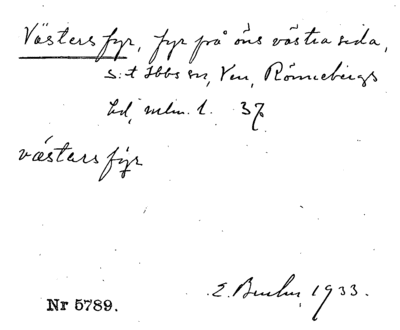 Västers fyr, fyr på öns västra sida,
S:t Ibbs sn, Ven, Rönnebergs
hd, mlm. l. 37
västars fy̨r
E. 1933.
Nr 5789.